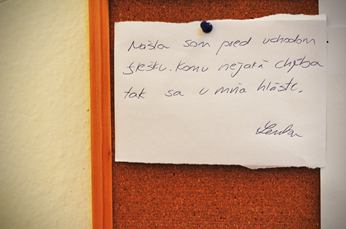 Našla som pred vchodom
flešku. Komu nejaká chýba
tak sa u mňa hláste.
Lenka